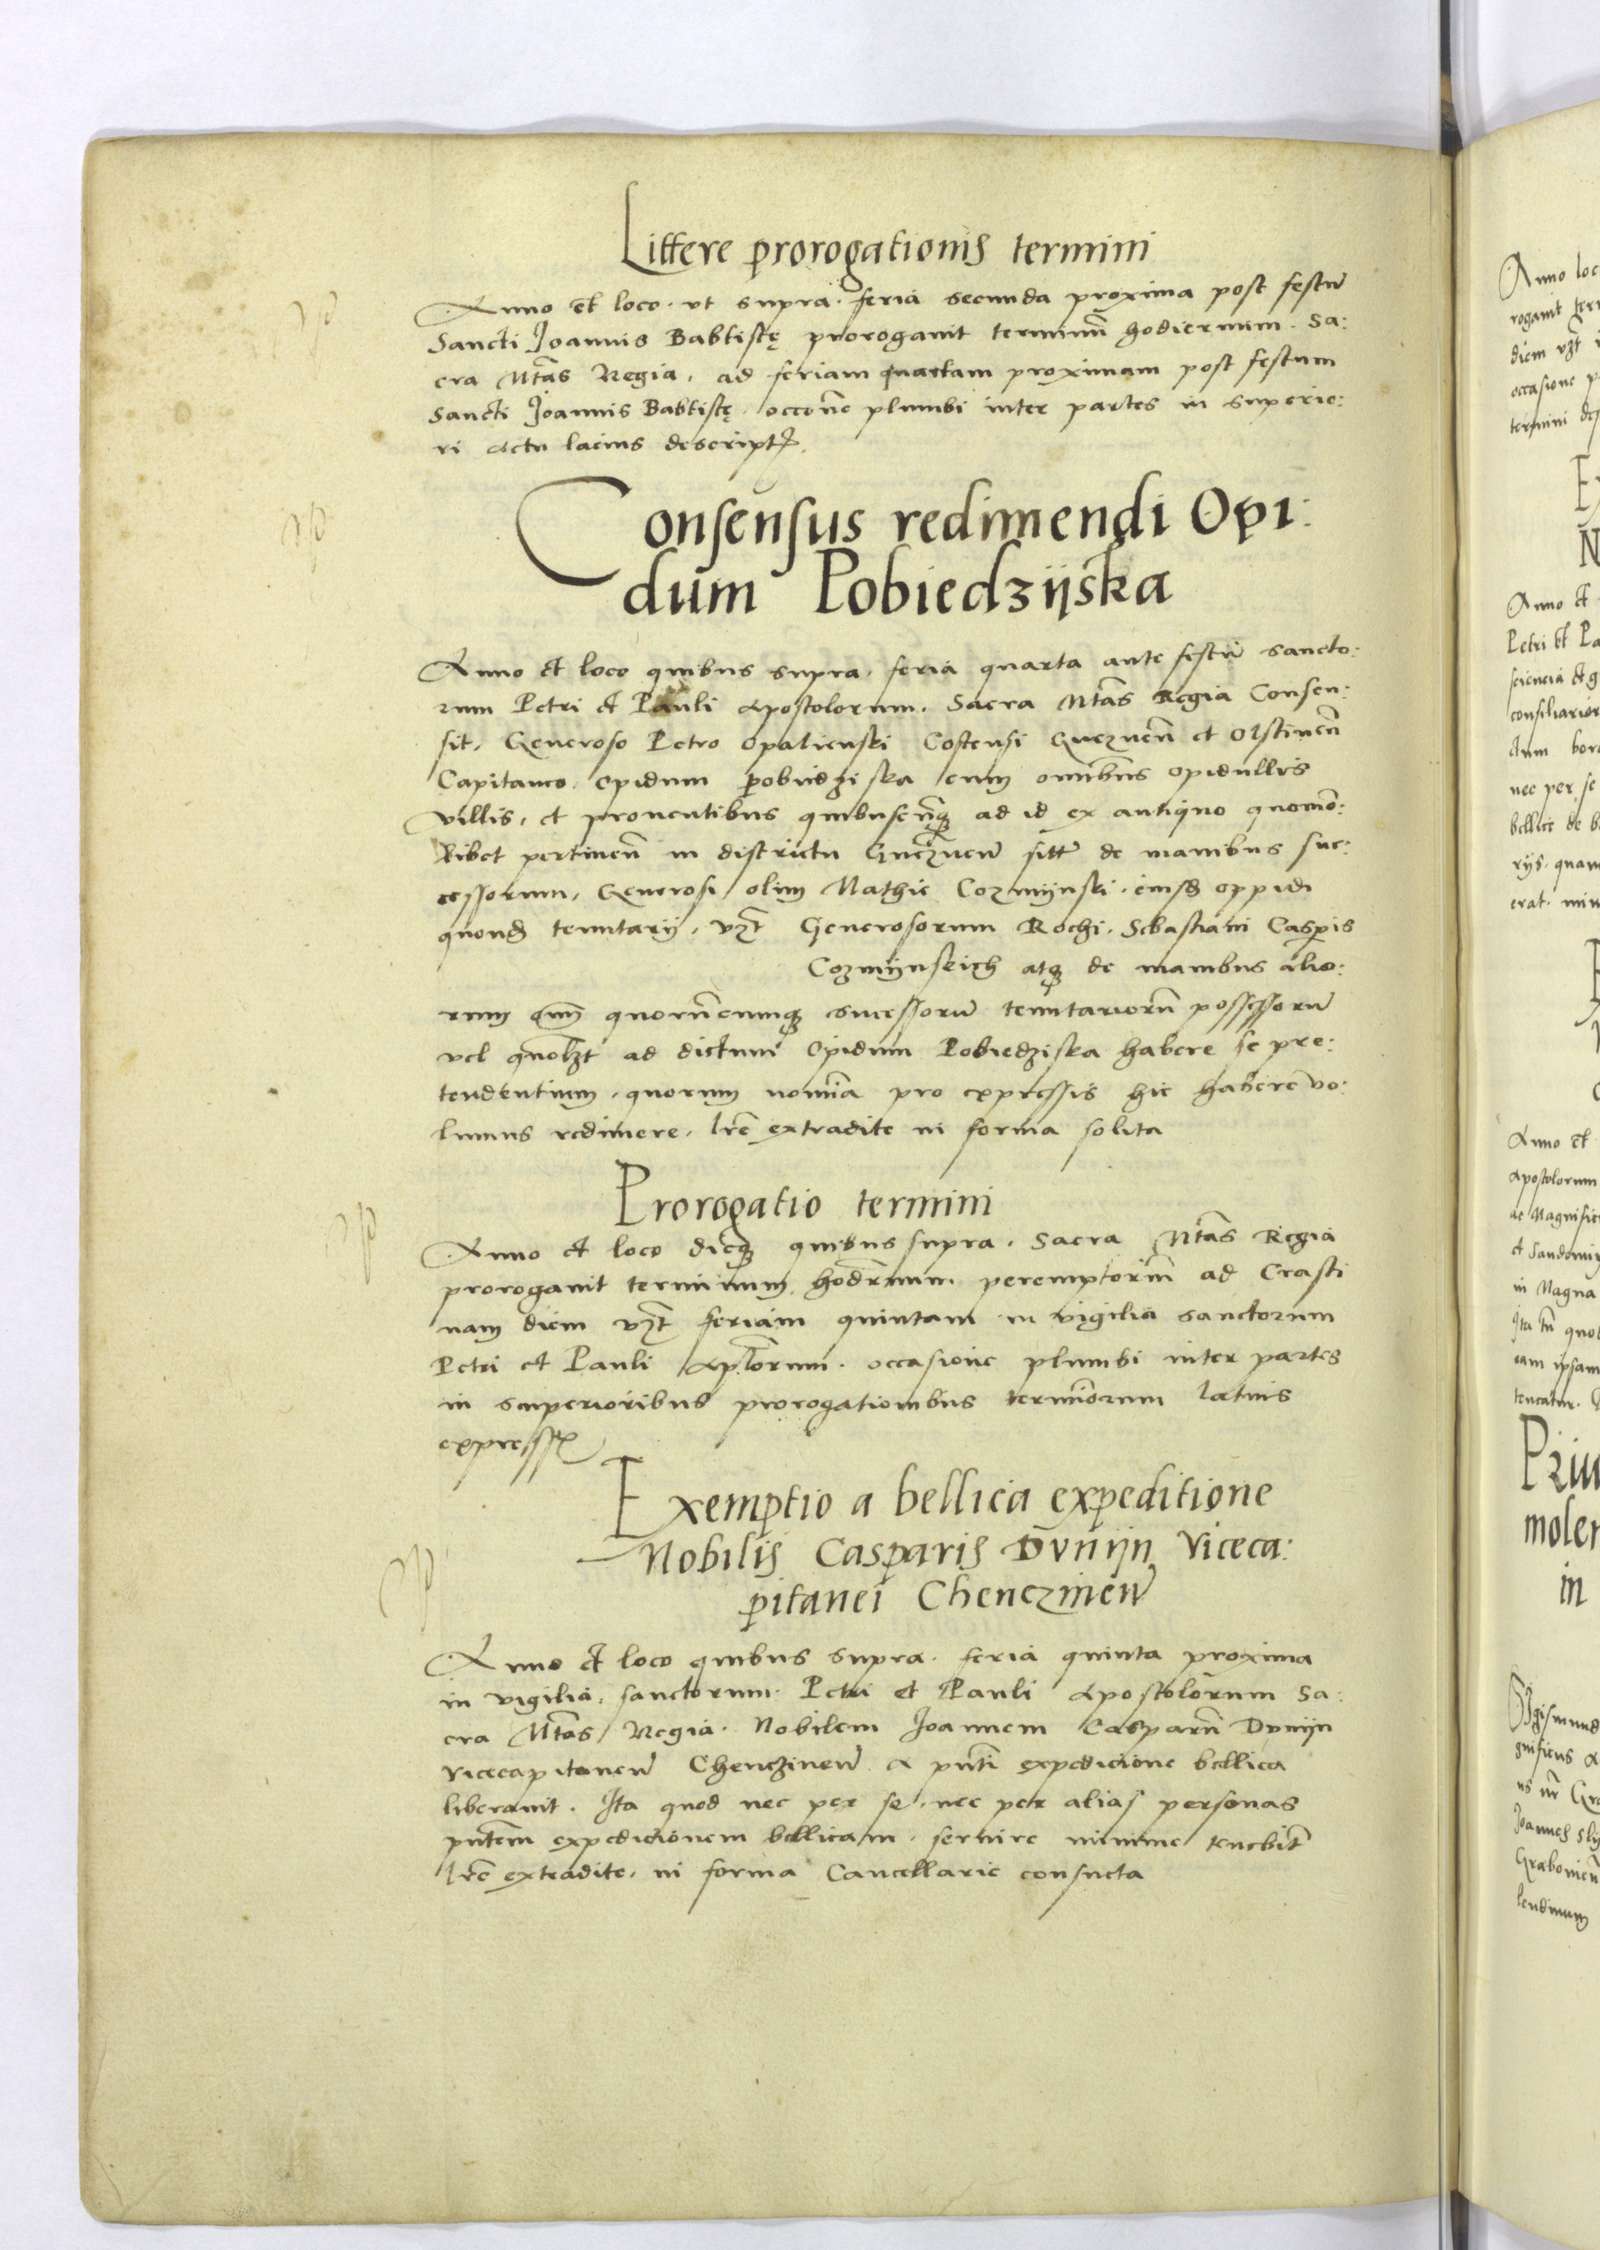 Littere prorogationis termini
Anno et loco ut supra feria secunda proxima post festū
Sancti Joannis Babtistę prorogavit terminū hodiernum Sa:
cra Mtas Regia, ad feriam quartam proximam post festum
Sancti Joannis Babtistę occone plumbi inter partes in superio:
ri actu lacius descript
Consensus redimendi Opi:
dum Pobiedzijska
Anno et loco quibus supra, feria quarta ante festū sancto:
rum Petri et Pauli Apostolorum. Sacra Mtas Regia Consen:
sit, Generoso Petro Opalienski Costensi Gneznen et Olstinen
Capitaneo, Opidum Pobiedziska cum omībus opidullis
villis, et proventibus quibuscūq ad id ex antiquo quomo:
libet pertinen in districtu Gneznen sitt de manibus suc:
cessorum, Generosi olim Mathie Cozmijnski, eiusd oppidi
quond tenutarij, vzt Generosorum Rochi, Sebastiani Caspis
Cozmijnscich atq de manibus alio:
rum quorūcunq successorū tenutariorū possessorū
vel quolzt ad dictum Opidum Pobiedziska habere se pre:
tendentium, quorum nomīa pro expressis hic habere vo:
lumus redimere, lre extradite in forma solita
Prorogatio termini
Anno et loco dieq quibus supra. Sacra Mtas Regia
prorogavit terminum hodrnum peremptoriū ad Crasti
nam diem vzt feriam quintam in vigilia sanctorum
Petri et Pauli Aplorum. occasione plumbi inter partes
in superioribus prorogationibus termīorum latius
express
Exemptio a bellica expeditione
Nobilis Casparis Dunijn Viceca:
pitanei Chenczinen
Anno et loco quibus supra. feria quinta proxima
in vigilia, sanctorum Petri et Pauli Apostolorum Sa:
cra Mtas Regia. Nobilem Joannem Casparū Dunijn
vicecapitaneū Chenczinen a pnti expedicione bellica
liberavit. Ita quod nec per se, nec per alias personas
pntem expedicionem bellicam, servire minime tenebit
lre extradite, in forma Cancellarie consueta